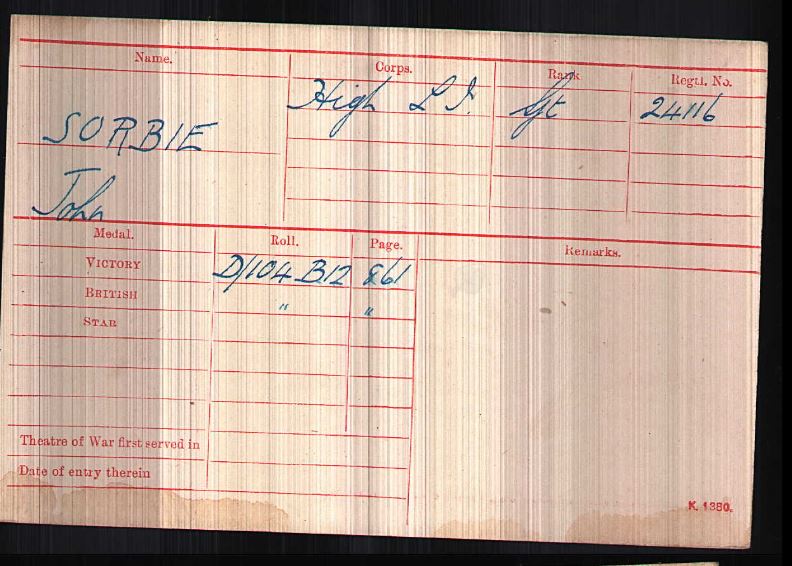 Name. Corps. Rank Regtl. No.
High L I. Sjt 24116
SORBIE
John
Medal. Roll. Page. Remarks.
VICTORY D/104 B12 861
BRITISH " "
STAR
Theatre of War first served in
Date of entry therein
K. 1380.